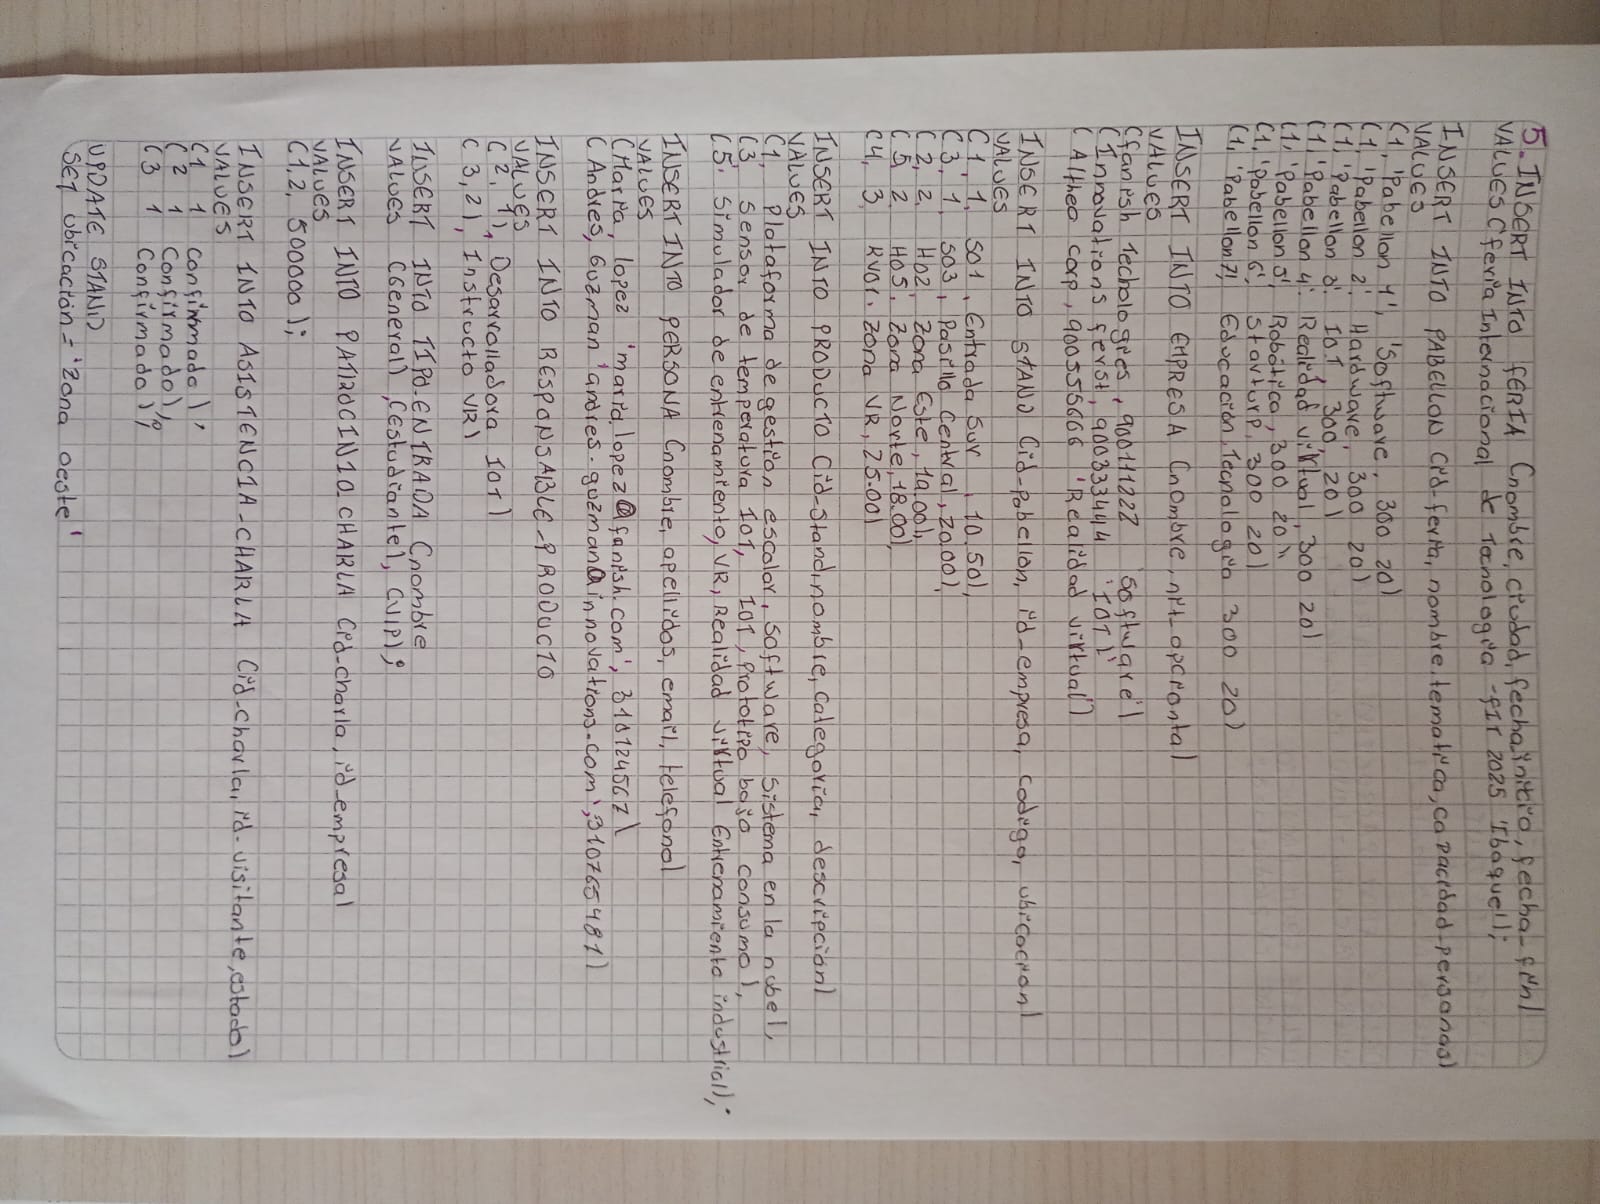 5. INSERT INTO FERIA (nombre, ciudad, fecha_inicio, fecha_fin)
VALUES (feria Internacional de Tecnologia - FIT 2025 'Ibague');
INSERT INTO PABELLON (id_feria, nombre, tematica, capacidad_personas)
VALUES
(1, 'Pabellon 1', 'Software, 300 20)
(1, 'Pabellon 2', Hardware, 300 20)
(1, 'Pabellon 3', IOT 300 20)
(1, 'Pabellon 4', Realidad virtual, 300 20)
(1, 'Pabellon 5', Robotica, 300 20),
(1, 'Pabellon 6', Startup, 300 20)
(1, 'Pabellon 7), Educación, Tecnologia 300 20)
INSERT INTO EMPRESA (nombre, nit_opcional)
VALUES
(fanish Techologies, 90011222 'Software')
(Innovations ferst, 90033444 'IOT)'
(Altheo corp, 900555666 'Realidad virtual')
INSERT INTO STAND (id_pabellon, id_empresa, codigo, ubicacion)
VALUES
(1, 1, S01, Entrada Sur, 10.50),
(3, 1, S03, Pasillo Central, 20.00),
(2, 2, H02, Zona Este, 10.00),
(5, 2 H05, Zona Norte, 18.00),
(4, 3 RV01. Zona VR, 25.00)
INSERT INTO PRODUCTO (id_stand, nombre, categoria, descripción)
VALUES
(1, Plataforma de gestion escolar, Software, Sistema en la nube),
(3, Sensor de temperatura IOT, IOT, Prototipo bajo consumo),
(5, Simulador de entrenamiento, VR, Realidad virtual Entrenamiento industrial);
INSERT INTO PERSONA (nombre, apellidos, email, telefono)
VALUES
(Maria, lopez 'maria.lopez@fanish.com', 3101234567)
(Andres, Guzman 'andres.guzman@innovations.com', 310765481)
INSERT INTO RESPONSABLE_PRODUCTO
VALUES
(2, 1), Desarrolladora IOT)
(3, 2), Instructo VR)
INSERT INTO TIPO_ENTRADA (nombre
VALUES (General), (Estudiante), (VIP);
INSERT INTO PATROCINIO_CHARLA (id_charla, id_empresa)
VALUES
(1, 2, 500000);
INSERT INTO ASISTENCIA-CHARLA (id_charla, id_visitante, estado)
VALUES
(1 1 confirmado),
(2 1 Confirmado),
(3 1 Confirmado),
UPDATE STAND
SET ubicación = 'Zona Oeste'